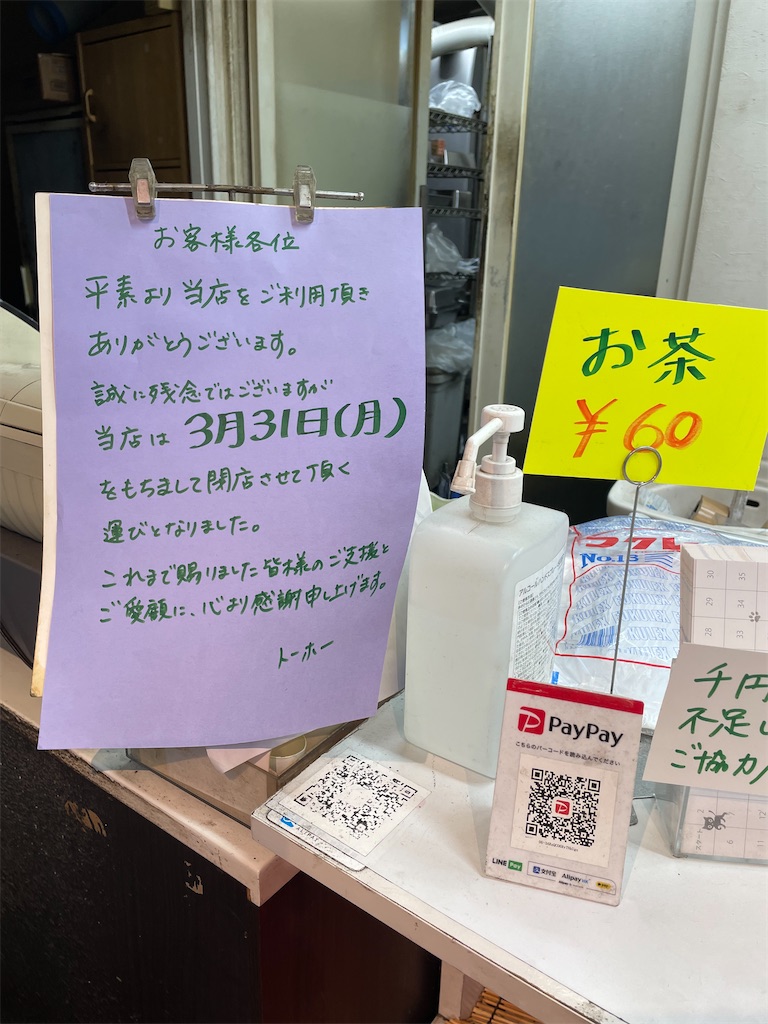 お客様各位
平素より当店をご利用頂き
ありがとうございます。
誠に残念ではございますが
当店は 3月31日(月)
をもちまして閉店させて頂く
運びとなりました。
これまで賜りました皆様のご支援と
ご愛顧に、心より感謝申し上げます。
トーホー
お茶
¥60
No.13
30
35
29
34
28
33
千円
不足し
ご協力
PayPay
こちらのバーコードを読み込んでください
LINE Pay
支付宝
Alipay
12
6
11